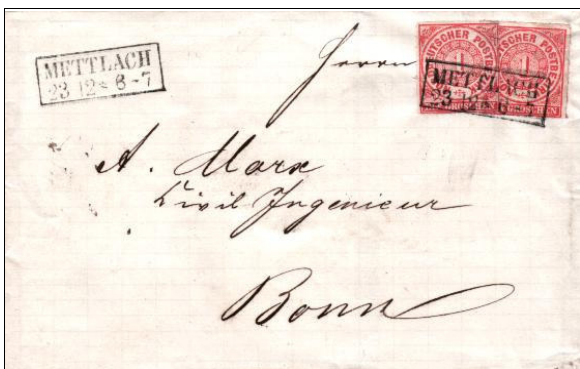 METTLACH
23 12 6-7
Herrn
DEUTSCHER POSTBE
1
GROSCHEN
METTLACH
23 12 6-7
A. Marx
Civil Ingenieur
Bonn